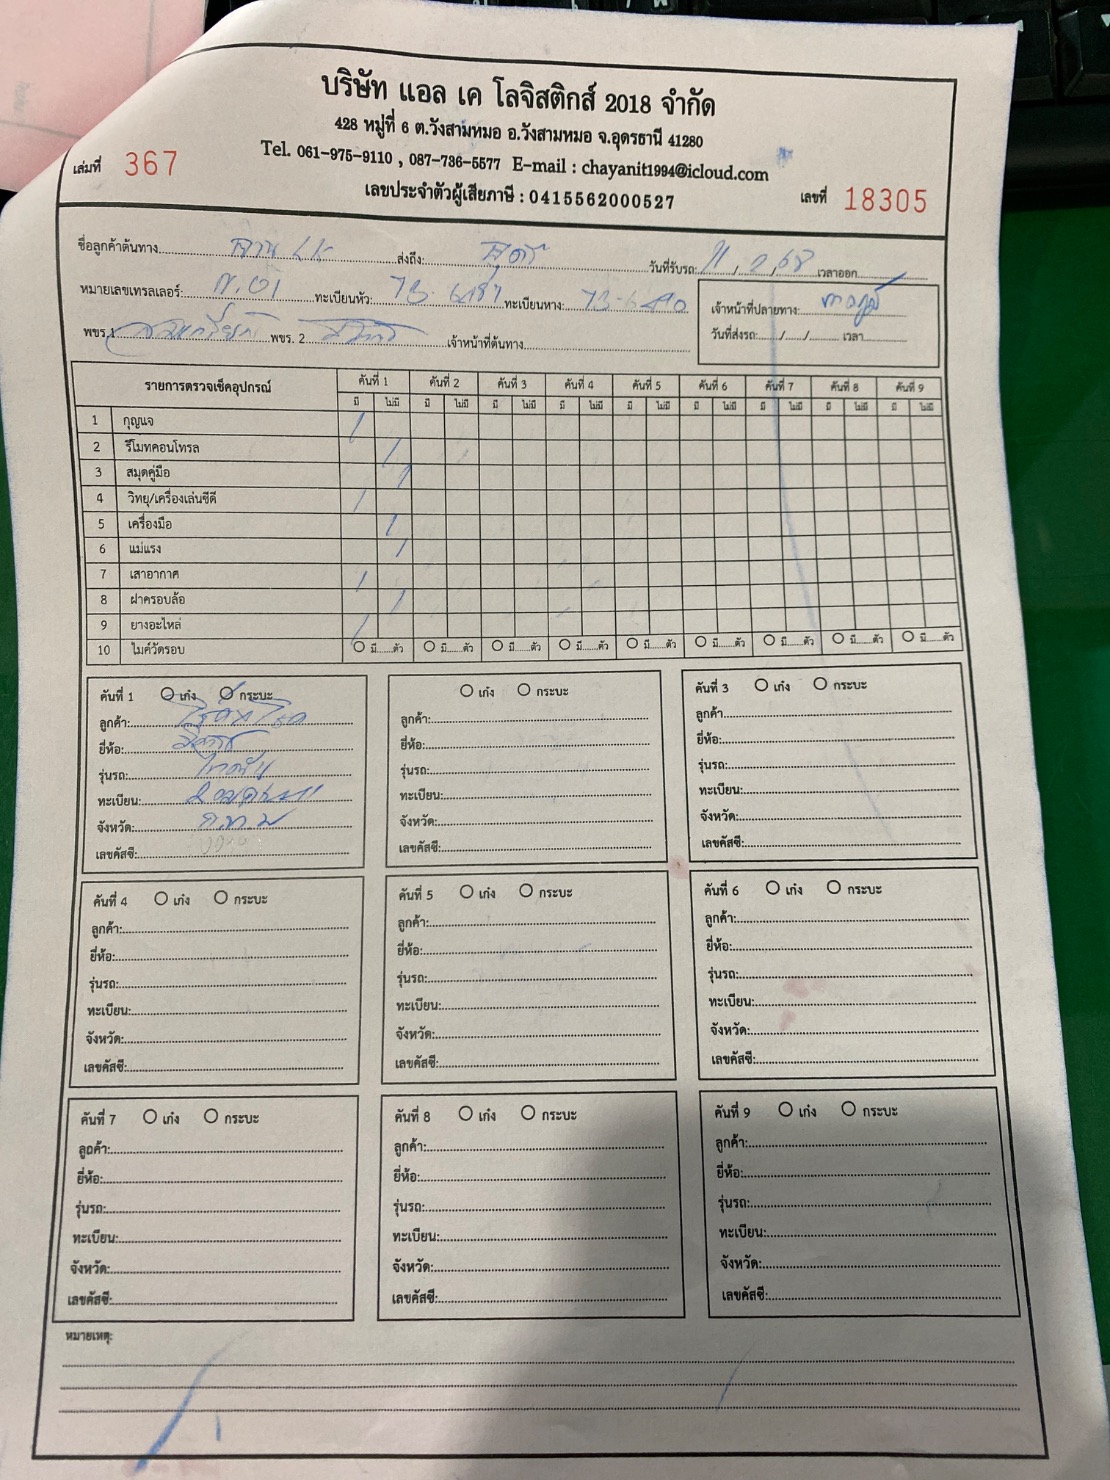 บริษัท แอล เค โลจิสติกส์ 2018 จำกัด
428 หมู่ที่ 6 ต.วังสามหมอ อ.วังสามหมอ จ.อุดรธานี 41280
Tel. 061-975-9110 , 087-736-5577 E-mail : chayanit1994@icloud.com
เลขประจำตัวผู้เสียภาษี : 0415562000527
เล่มที่ 367
เลขที่ 18305
ชื่อลูกค้าต้นทาง ลาน LK ส่งถึง: วันที่รับรถ: 11/2/68 เวลาออก
หมายเลขเทรลเลอร์: ทะเบียนหัว: ทะเบียนหาง:
พขร.1 พขร. 2 เจ้าหน้าที่ต้นทาง:
เจ้าหน้าที่ปลายทาง:
วันที่ส่งรถ: / / เวลา
รายการตรวจเช็คอุปกรณ์ คันที่ 1 คันที่ 2 คันที่ 3 คันที่ 4 คันที่ 5 คันที่ 6 คันที่ 7 คันที่ 8 คันที่ 9
มี ไม่มี มี ไม่มี มี ไม่มี มี ไม่มี มี ไม่มี มี ไม่มี มี ไม่มี มี ไม่มี มี ไม่มี
1 กุญแจ
2 รีโมทคอนโทรล
3 สมุดคู่มือ
4 วิทยุ/เครื่องเล่นซีดี
5 เครื่องมือ
6 แม่แรง
7 เสาอากาศ
8 ฝาครอบล้อ
9 ยางอะไหล่
10 ไมค์วัดรอบ มี......ตัว มี......ตัว มี......ตัว มี......ตัว มี......ตัว มี......ตัว มี......ตัว มี......ตัว มี......ตัว
คันที่ 1 เก๋ง กระบะ
ลูกค้า:
ยี่ห้อ:
รุ่นรถ:
ทะเบียน:
จังหวัด: กทม
เลขคัสซี:
เก๋ง กระบะ
ลูกค้า:
ยี่ห้อ:
รุ่นรถ:
ทะเบียน:
จังหวัด:
เลขคัสซี:
คันที่ 3 เก๋ง กระบะ
ลูกค้า
ยี่ห้อ:
รุ่นรถ:
ทะเบียน:
จังหวัด:
เลขคัสซี:
คันที่ 4 เก๋ง กระบะ
ลูกค้า:
ยี่ห้อ:
รุ่นรถ:
ทะเบียน:
จังหวัด:
เลขคัสซี:
คันที่ 5 เก๋ง กระบะ
ลูกค้า:
ยี่ห้อ:
รุ่นรถ:
ทะเบียน:
จังหวัด:
เลขคัสซี:
คันที่ 6 เก๋ง กระบะ
ลูกค้า:
ยี่ห้อ:
รุ่นรถ:
ทะเบียน:
จังหวัด:
เลขคัสซี:
คันที่ 7 เก๋ง กระบะ
ลูกค้า:
ยี่ห้อ:
รุ่นรถ:
ทะเบียน:
จังหวัด:
เลขคัสซี:
คันที่ 8 เก๋ง กระบะ
ลูกค้า:
ยี่ห้อ:
รุ่นรถ:
ทะเบียน:
จังหวัด:
เลขคัสซี:
คันที่ 9 เก๋ง กระบะ
ลูกค้า:
ยี่ห้อ:
รุ่นรถ:
ทะเบียน:
จังหวัด:
เลขคัสซี:
หมายเหตุ: